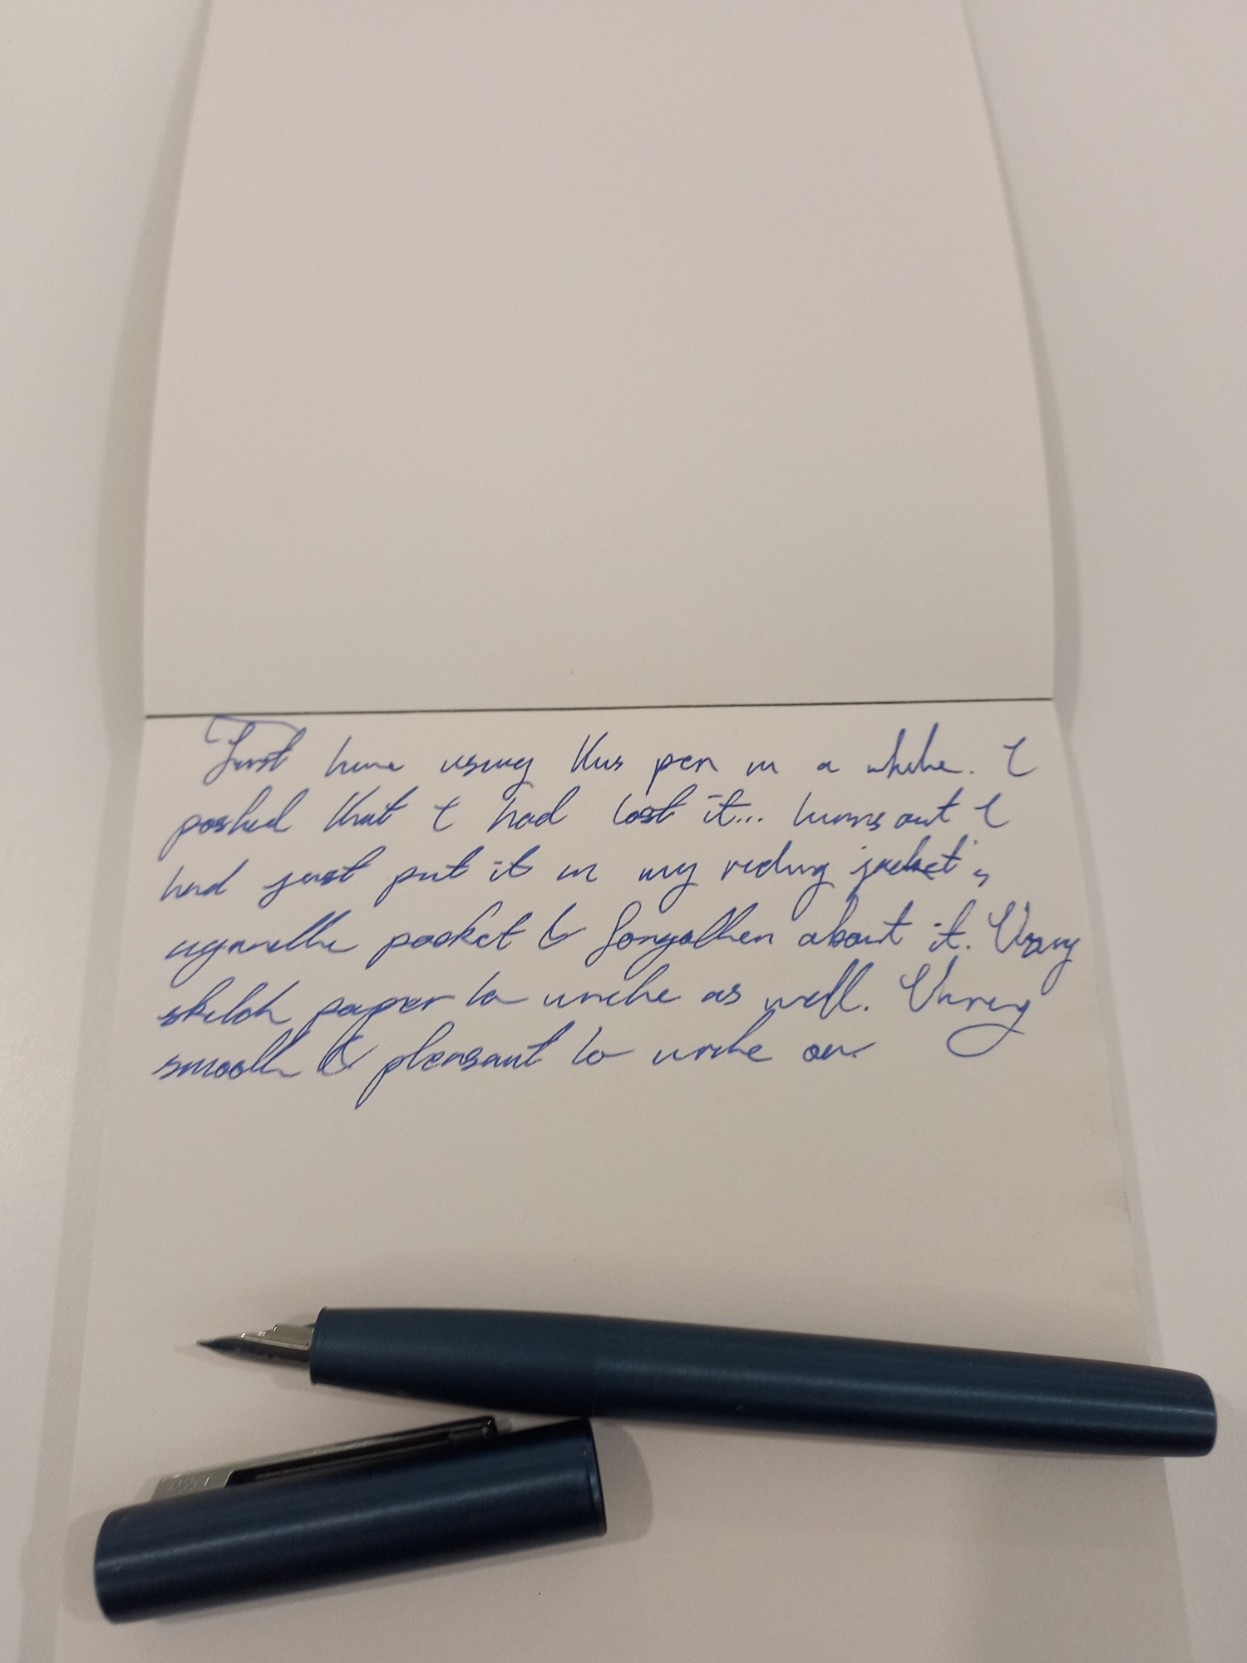 First time using this pen in a while. I
posted that I had lost it... turns out I
had just put it in my riding jacket's
cigarette pocket & forgotten about it. Using
sketch paper to write as well. Very
smooth & pleasant to write on.